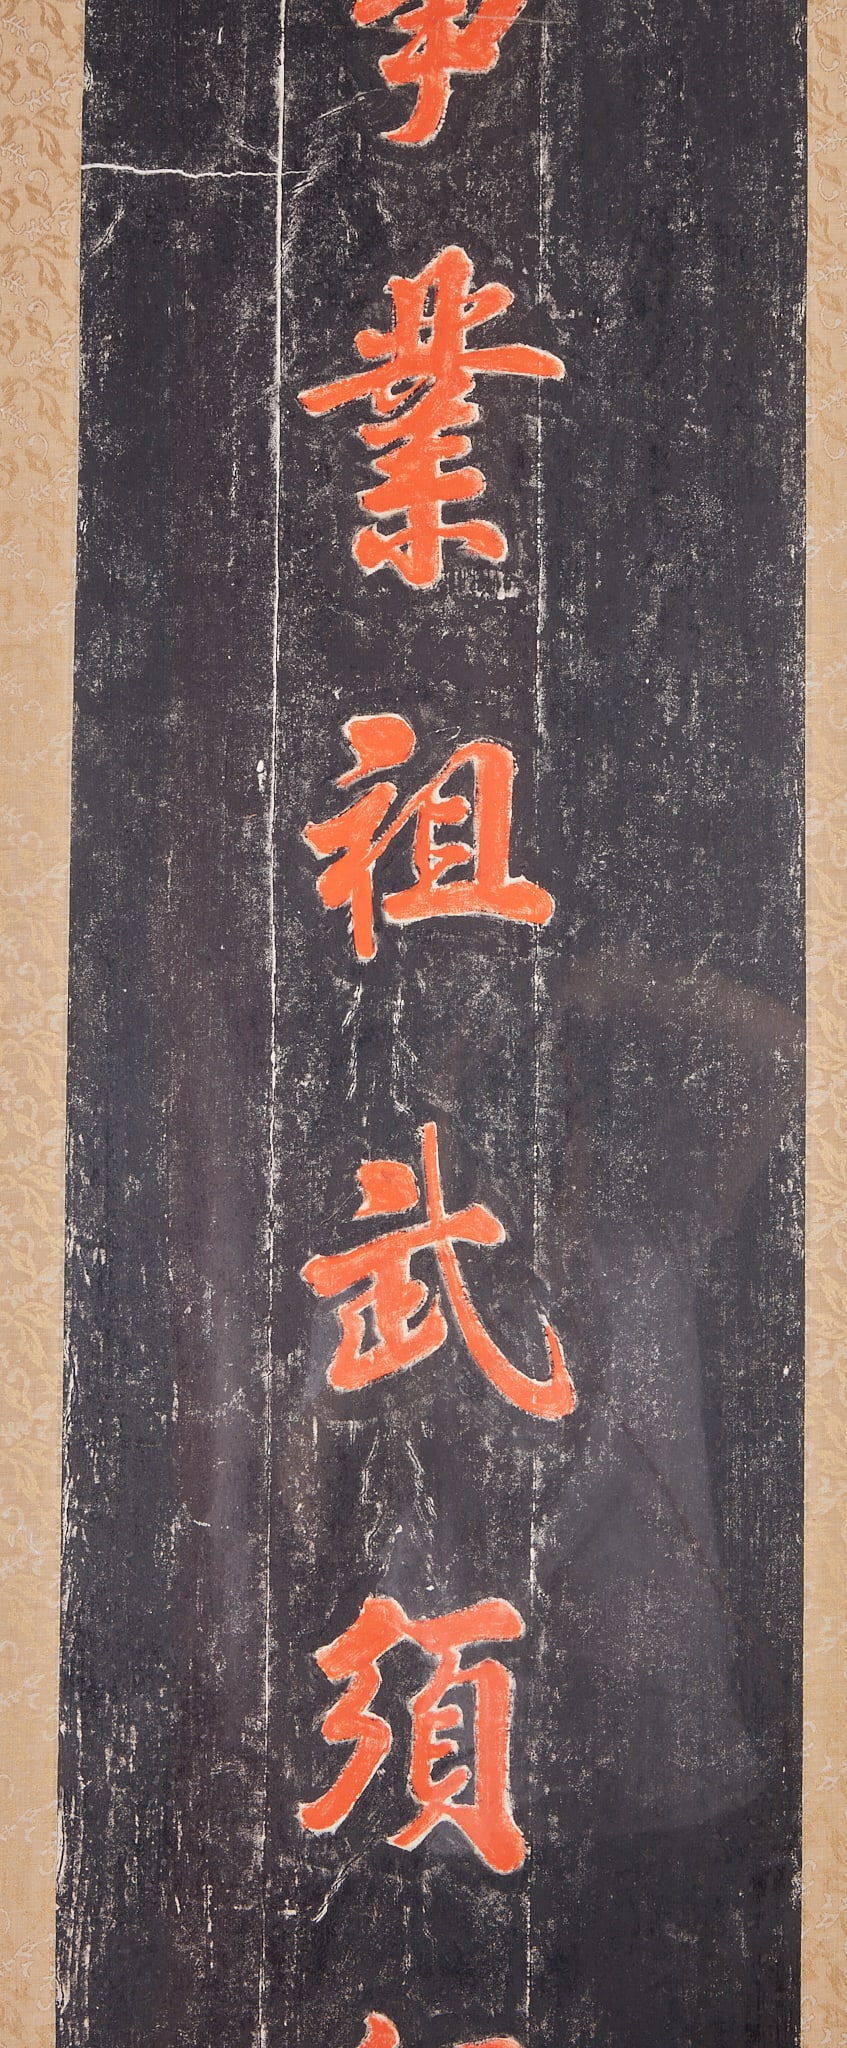 業祖武須